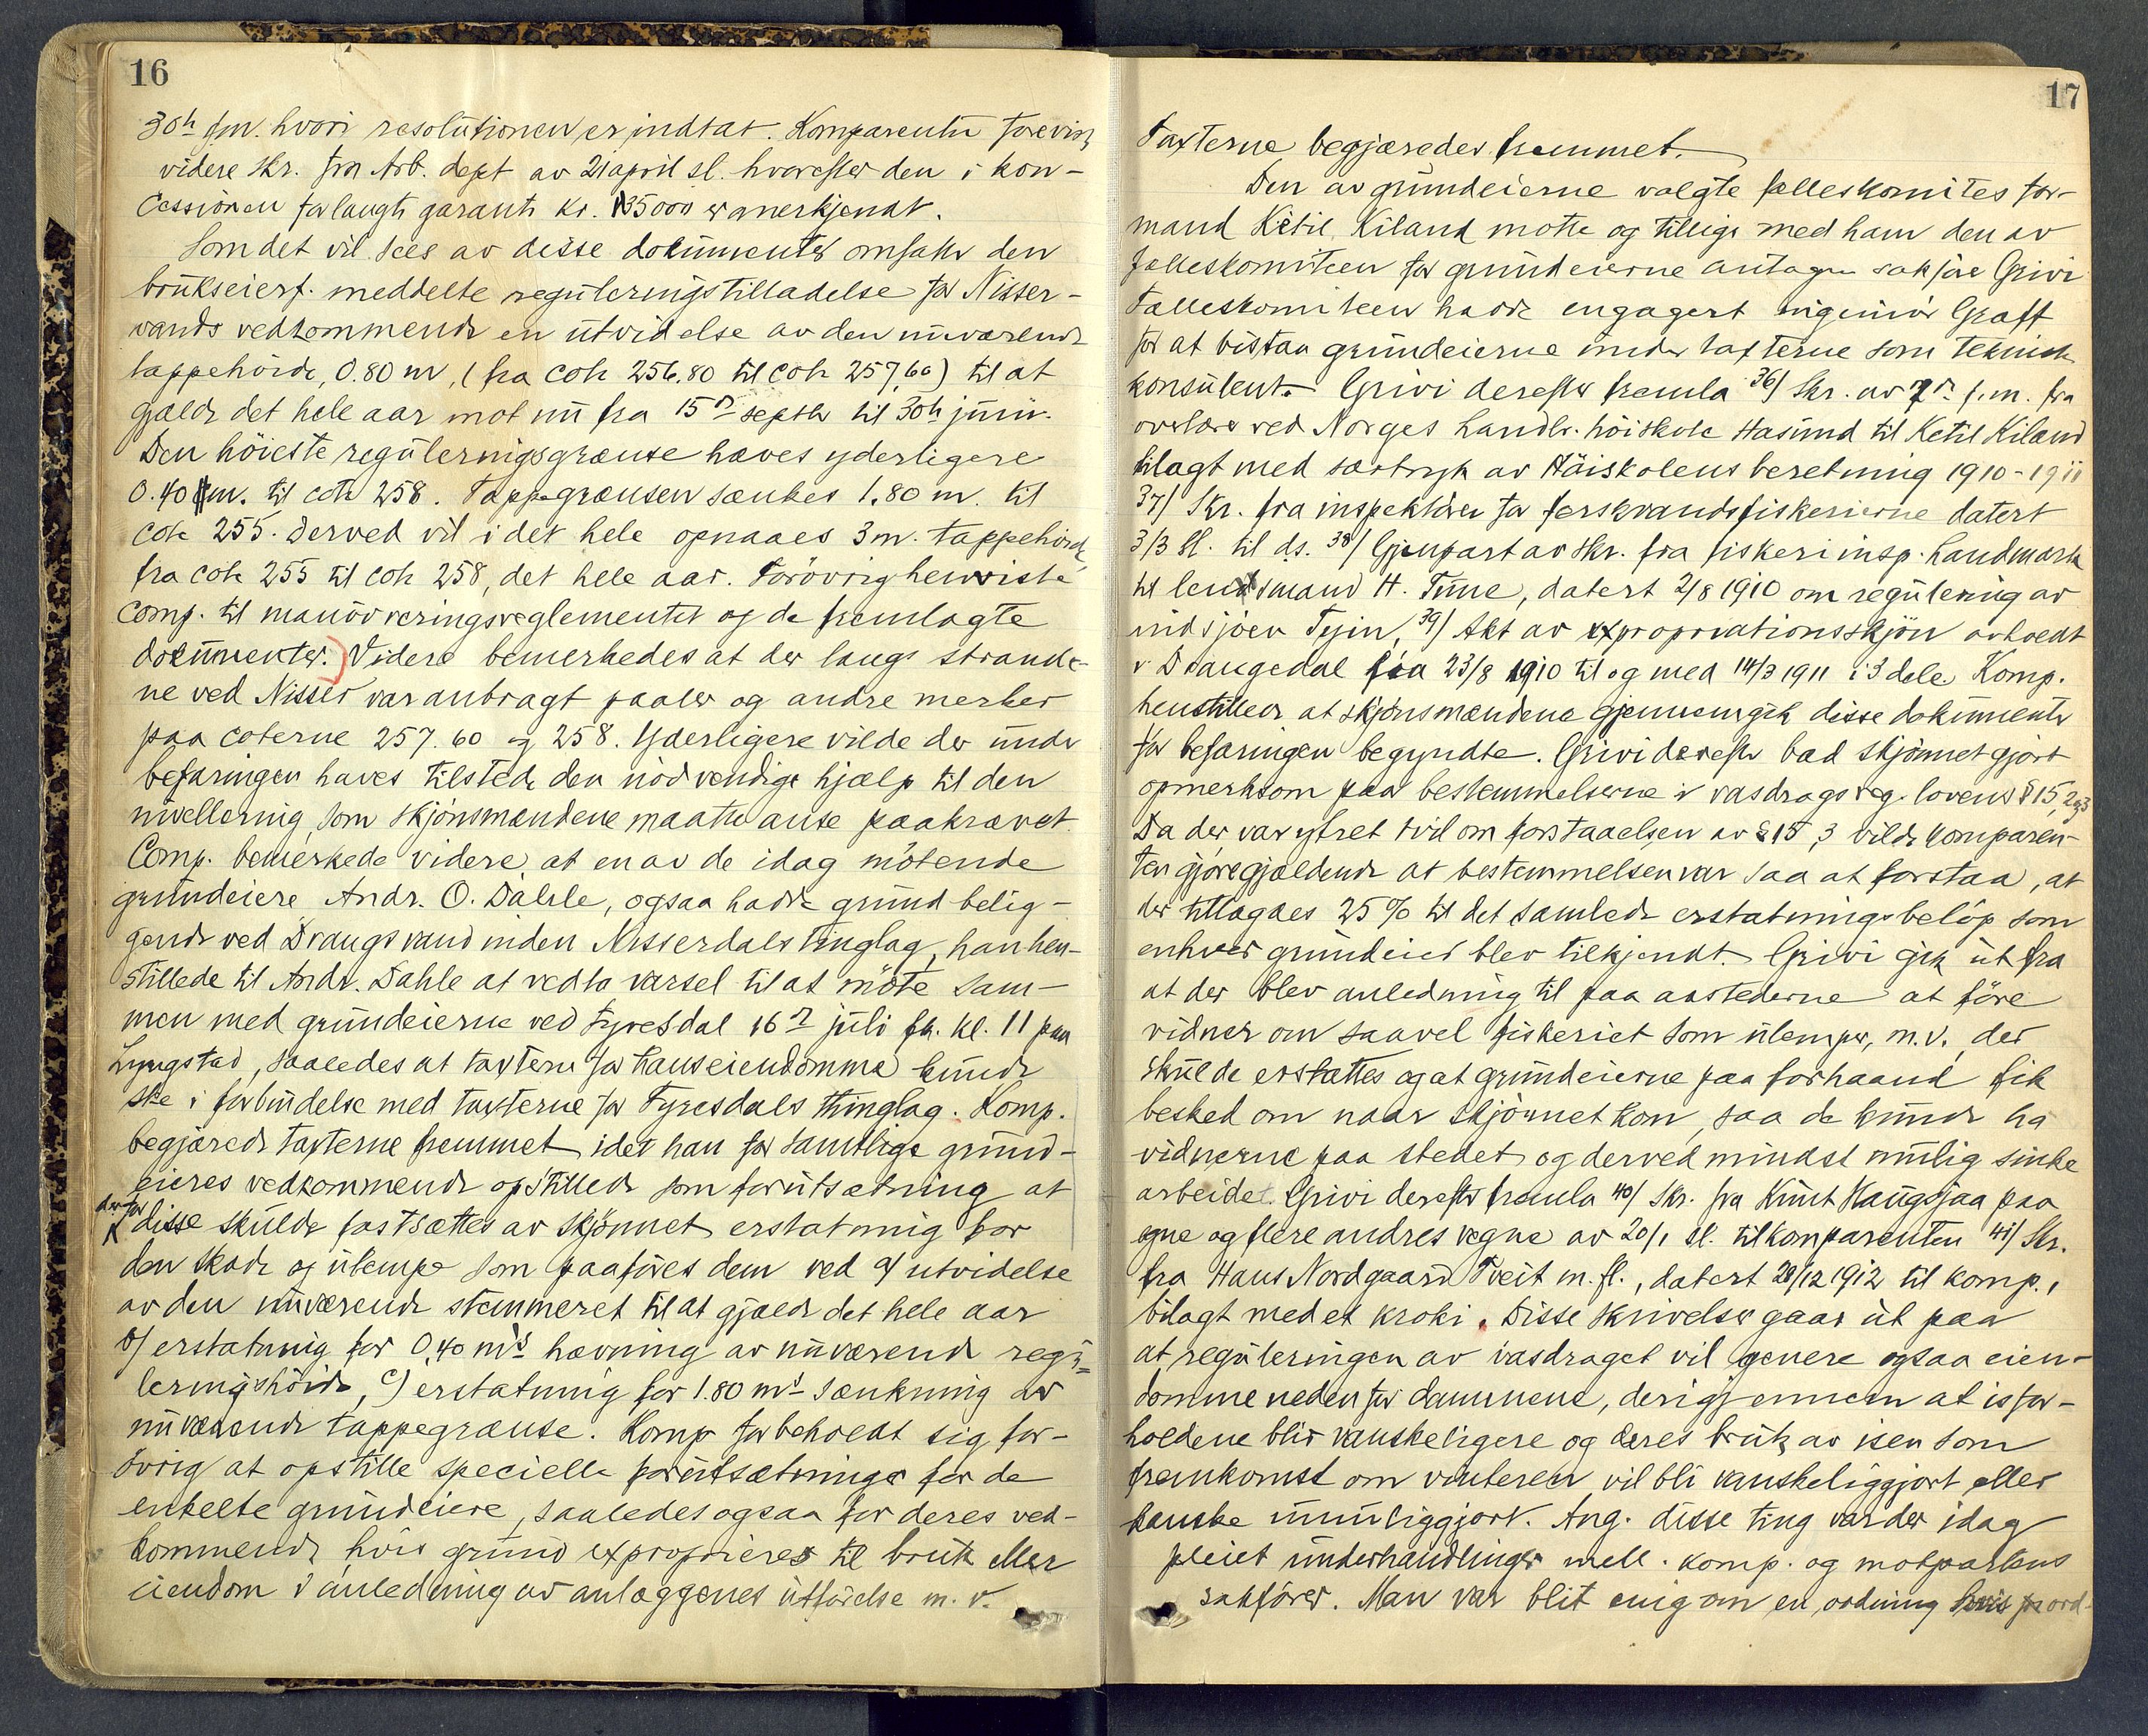 16
30h fm. hvori resolutionen er indtat. Komparenten foreviste
videre skr. fra Arb. dept av 21 april sl. hvorefter den i kon-
cessionen forlangte garanti kr. 35000 er anerkjendt.
Som det vil sees av disse dokumenter omfatter den
brukseierf. meddelte reguleringstilladelse for Nisser-
vands vedkommende en utvidelse av den nuværende
tappehöide, 0.80 m, (fra cote 256.80 til cote 257,60) til at
gjælde det hele aar mot nu fra 15de septbr til 30te juni.
Den höieste reguleringsgrænse hæves yderligere
0.40 m. til cote 258. Tappegrænsen sænkes 1.80 m. til
cote 255. Derved vil i det hele opnaaes 3 m. tappehöide,
fra cote 255 til cote 258, det hele aar. Forövrig henviste
Comp. til manövreringsreglementet og de fremlagte
dokumenter.) Videre bemerkedes at der langs strande-
ne ved Nisser var anbragt paaler og andre merker
paa coterne 257.60 og 258. Yderligere vilde der under
befaringen haves tilstede den nödvendige hjælp til den
nivellering som skjönsmændene maatte anse paakrævet.
Comp. bemerkede videre, at en av de idag mötende
grundeiere Andr. O. Dahle, ogsaa hadde grund belig-
gende ved Drangsvand inden Nisserdals tinglag, han hen-
stillede til Andr. Dahle at vedta varsel til at möte sam-
men med grundeierne ved Fyresdal 16de juli fk. kl. 11 paa
Lyngstad, saaledes at taxterne for hans eiendomme kunde
ske i forbindelse med taxterne for Fyresdals thinglag. Komp.
begjærede taxterne fremmet idet han for samtlige grund-
eieres vedkommende opstillede som forutsætning at
der for
disse skulde fastsættes av skjönnet erstatning for
den skade og ulempe som paaföres dem ved a/ utvidelse
av den nuværende stemmeret til at gjælde det hele aar
b/ erstatning for 0,40 m's hævning av nuværende regu-
leringshöide, c) erstatning for 1.80 m's sænkning av
nuværende tappegrænse. Komp forbeholdt sig for-
övrig at opstille specielle forutsætninger for de
enkelte grundeiere, saaledes ogsaa for deres ved-
kommende hvis grund exproprieres til bruk eller
eiendom i anledning av anlæggenes utförelse m. v.
17
Taxterne begjæredes fremmet.
Den av grundeierne valgte felleskomites for-
mand Ketil Kiland mötte og tillige med ham den av
felleskomiteen for grundeierne antagne sakförer Grivi
Felleskomiteen hadde engagert ingeniör Graff
for at bistaa grundeierne under taxterne som teknisk
konsulent. Grivi derefter fremla 36/ Skr. av 7de f.m. fra
overlærer ved Norges Landbr. höiskole Hasund til Ketil Kiland
bilagt med særtryk av Höiskolens beretning 1910-1911
37/ Skr. fra inspektören for ferskvandsfiskerierne datert
3/3 sl. til ds. 38/ Gjenpart av skr. fra fiskeriinsp. Landmark
til lensmand H. Tune, datert 2/8 1910 om regulering av
indsjöen Tyin, 39/ Akt av expropriationsskjön avholdt
i Drangedal fra 23/8 1910 til og med 14/3 1911 i 3 dele Komp.
henstilleer at skjönsmændene gjennemgik disse dokumenter
för befaringen begyndte. Grivi derefter bad skjönnet gjort
opmerksom paa bestemmelserne i vasdragsreg. lovens § 15, 2 og 3
Da der var ytret tvil om forstaaelsen av § 15, 3 vilde komparen-
ten gjöre gjældende at bestemmelsen var saa at forstaa, at
der tillagdes 25 % til det samlede erstatningsbelöp som
enhver grundeier blev tilkjendt. Grivi gik ut fra
at der blev anledning til paa aastederne at före
vidner om saavel fiskeriet som ulemper, m.v. der
skulde erstattes og at grundeierne paa forhaand fik
besked om naar skjönnet kom, saa de kunde ha
vidnerne paa stedet og derved mindst mulig sinke
arbeidet. Grivi derefter fremla 40/ Skr. fra Knut Haugsjaa paa
egne og flere andres vegne av 20/1 sl. til komparenten 41/ Skr.
fra Hans Nordgaard Tveit m.fl., datert 28/12 1912 til komp.,
bilagt med et kroki. Disse skrivelser gaar ut paa
at reguleringen av vasdraget vil genere ogsaa eien-
domme nedenfor dammene, derigjennem at isfor-
holdene blir vanskeligere og deres bruk av isen som
fremkomst om vinteren vil bli vanskeliggjort eller
kanske umuliggjort. Ang. disse ting var der idag
pleiet underhandlinger mell. komp. og motpartens
sakförer. Man var blit enig om en ordning